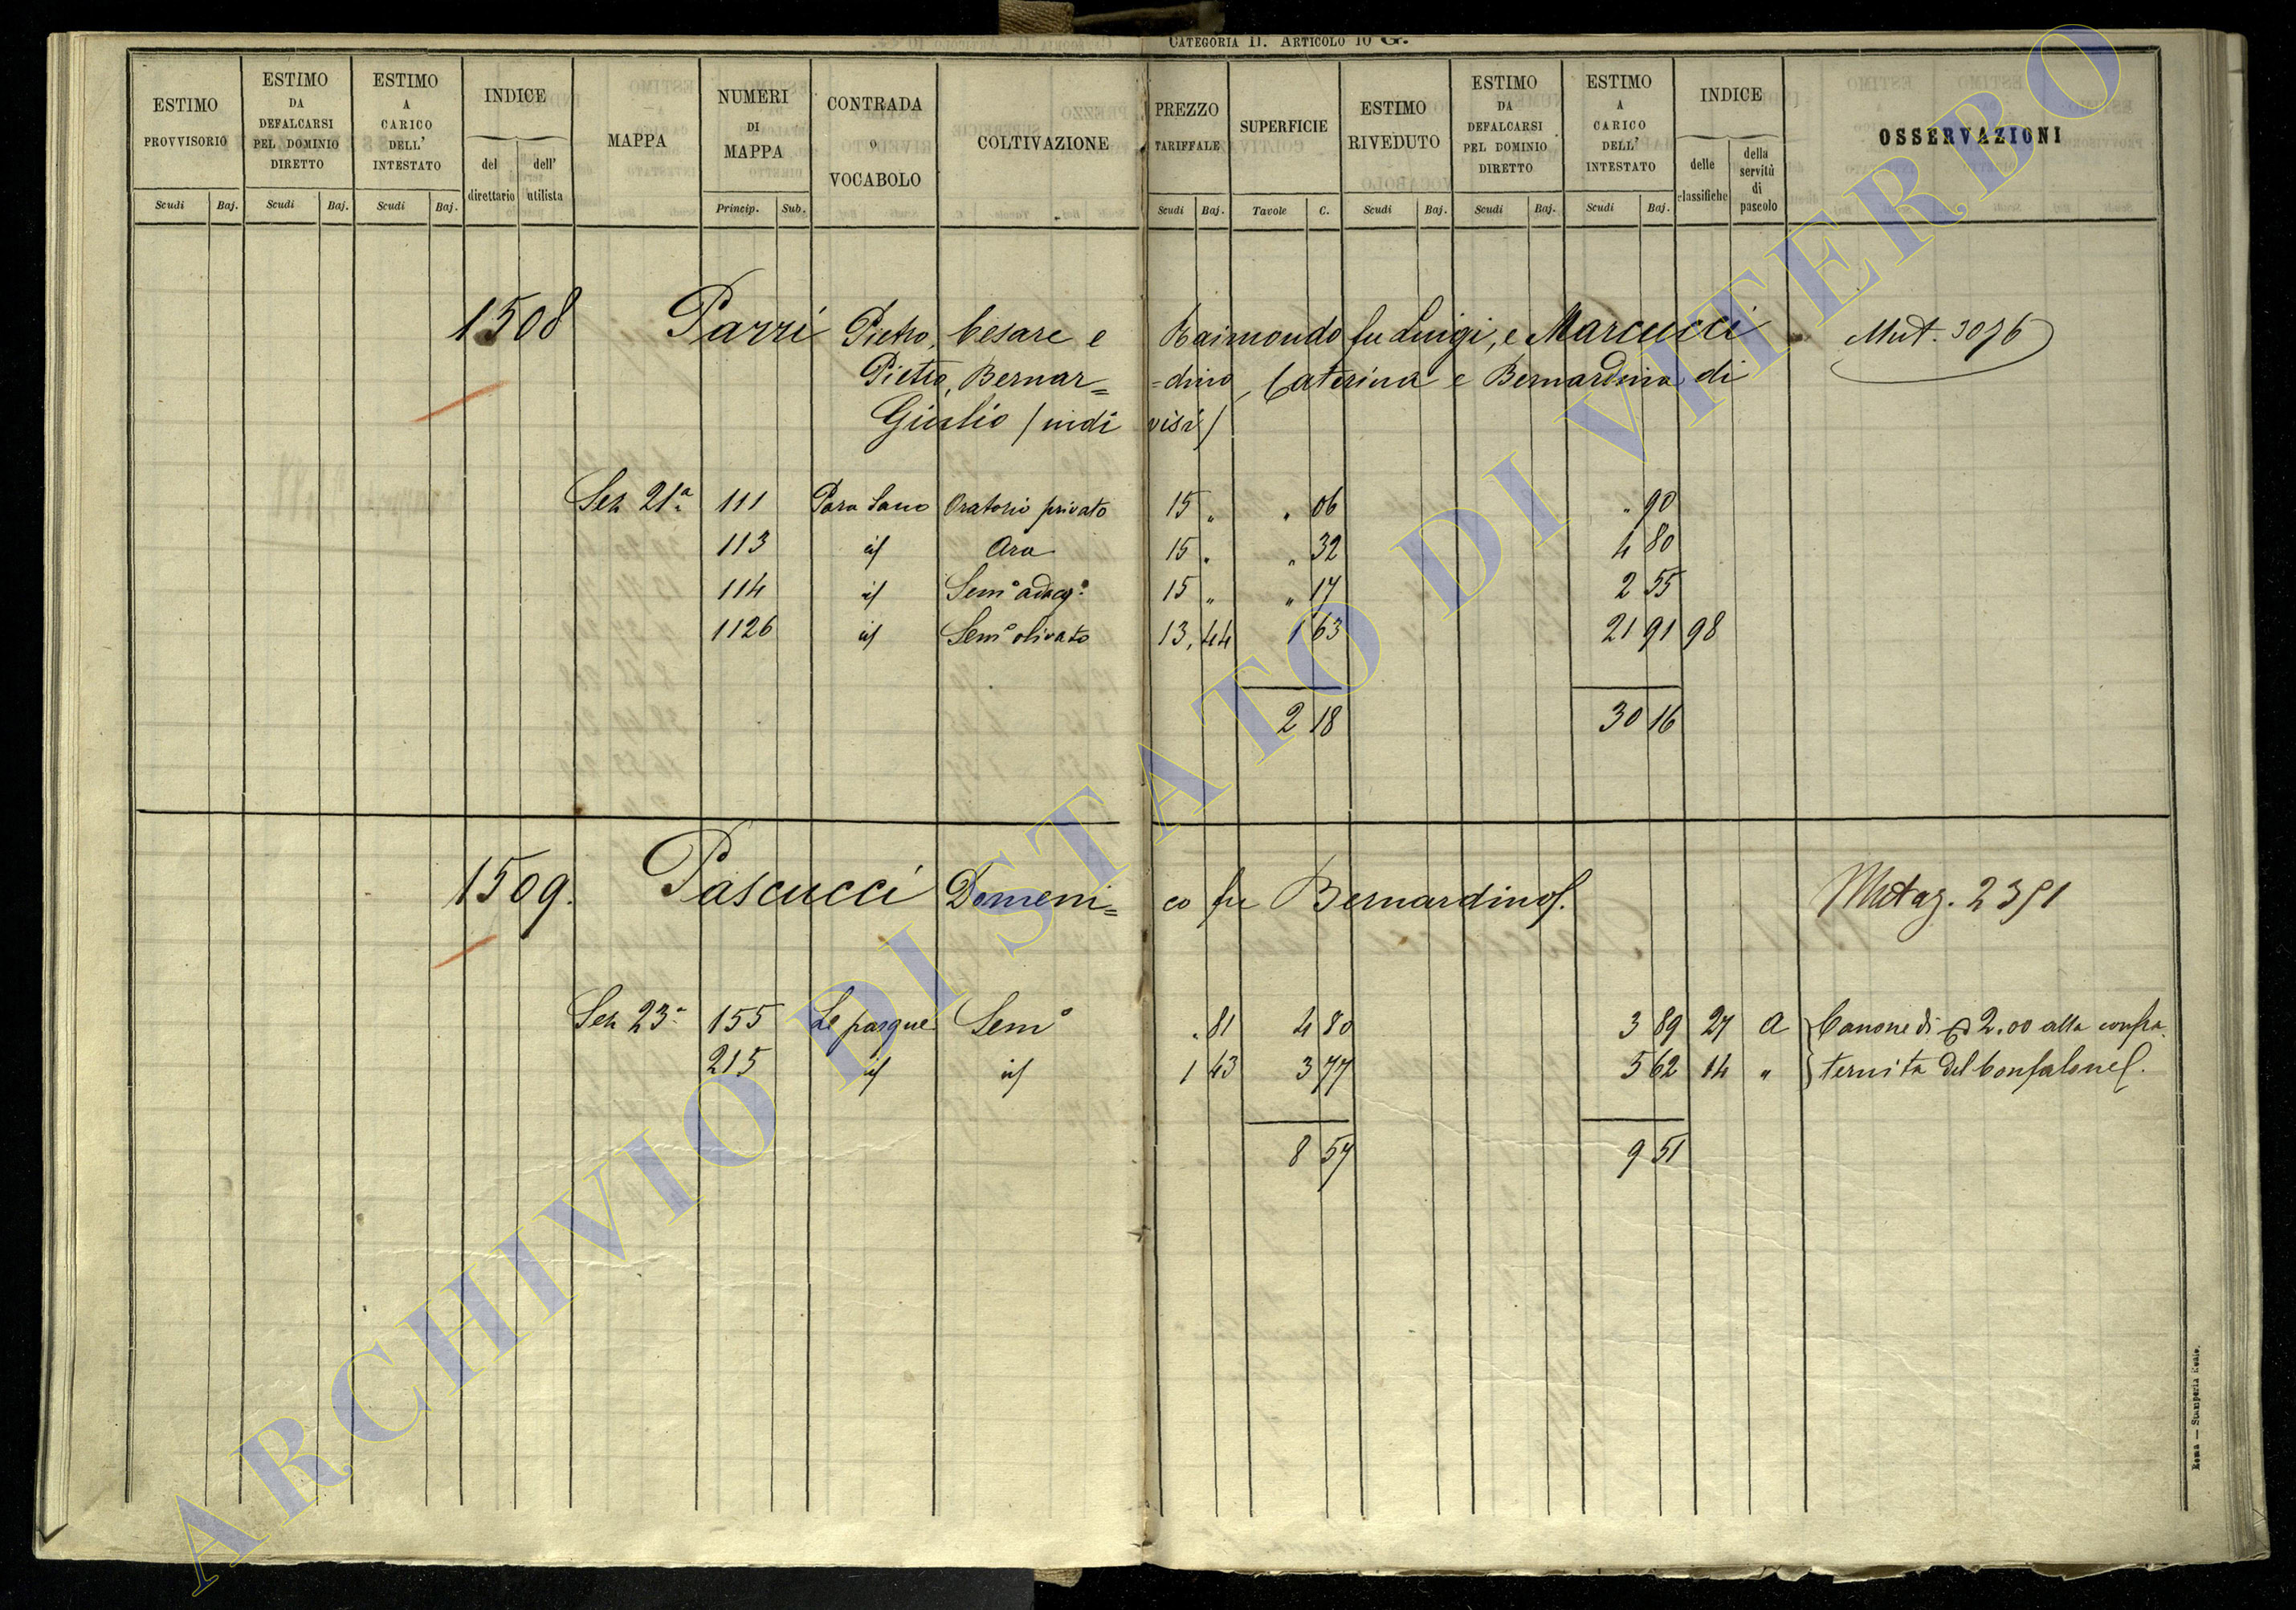 CATEGORIA II. ARTICOLO 10 G.
ESTIMO PROVVISORIO Scudi Baj. ESTIMO DA DEFALCARSI PEL DOMINIO DIRETTO Scudi Baj. ESTIMO A CARICO DELL' INTESTATO Scudi Baj. INDICE del direttario dell' utilista MAPPA NUMERI DI MAPPA Princip. Sub. CONTRADA o VOCABOLO COLTIVAZIONE PREZZO TARIFFALE Scudi Baj. SUPERFICIE Tavole C. ESTIMO RIVEDUTO Scudi Baj. ESTIMO DA DEFALCARSI PEL DOMINIO DIRETTO Scudi Baj. ESTIMO A CARICO DELL' INTESTATO Scudi Baj. INDICE delle classifiche della servitù di pascolo OSSERVAZIONI
1508 Parri Pietro, Cesare e Raimondo fu Luigi, e Marcucci Mut. 3076
Pietro, Bernar= =dino, Caterina e Bernardina di
Giulio / indi visi /
Sez 21a 111 Oratorio privato 15 „ „ 06 „ 90
113 id Ara 15 „ „ 32 4 80
114 id Semo adacqo 15 „ „ 17 2 55
1126 id Semo olivato 13,44 1 63 21 91 98
2 18 30 16
1509. Pascucci Domeni= co fu Bernardino. Mutaz. 2391
Sez 23a 155 Le parque Semo „ 81 4 80 3 89 27 A Canone di 2.00 alla confra
215 id id 1 43 3 77 5 62 14 „ ternita del Gonfalone.
8 57 9 51
Roma — Stamperia Reale.
ARCHIVIO DI STATO DI VITERBO